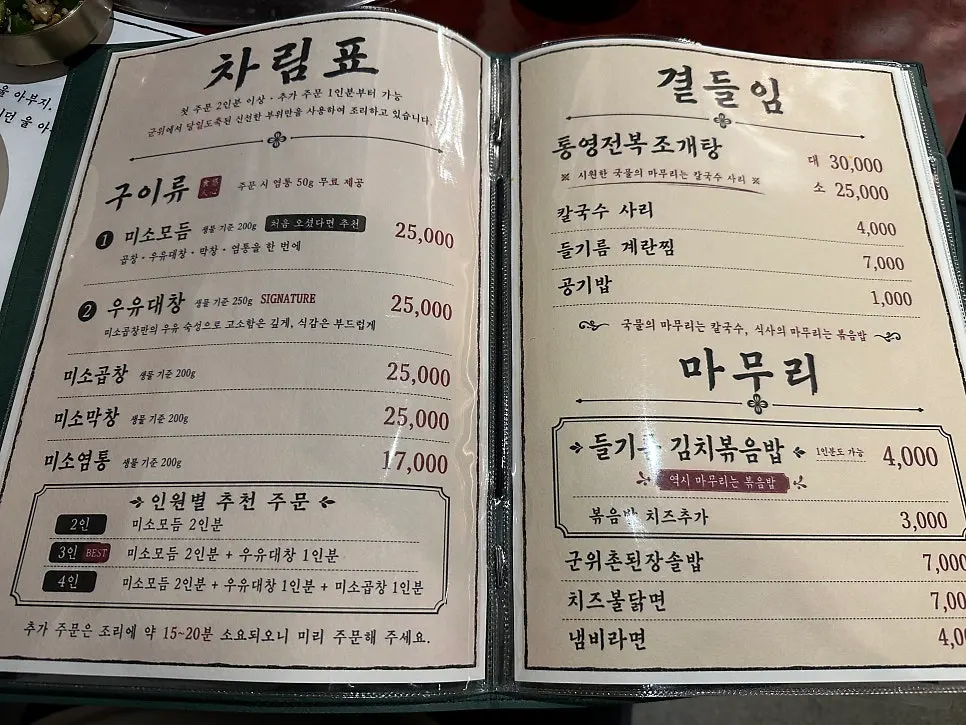 을 아부지.
차림표
첫 주문 2인분 이상 · 추가 주문 1인분부터 가능
군위에서 당일도축된 신선한 부위만을 사용하여 조리하고 있습니다.
구이류 주문 시 염통 50g 무료 제공
1 미소모듬 생물 기준 200g 처음 오셨다면 추천 25,000
곱창·우유대창·막창·염통을 한 번에
2 우유대창 생물 기준 250g SIGNATURE 25,000
미소곱창만의 우유 숙성으로 고소함은 깊게, 식감은 부드럽게
미소곱창 생물 기준 200g 25,000
미소막창 생물 기준 200g 25,000
미소염통 생물 기준 200g 17,000
인원별 추천 주문
2인 미소모듬 2인분
3인 BEST 미소모듬 2인분 + 우유대창 1인분
4인 미소모듬 2인분 + 우유대창 1인분 + 미소곱창 1인분
추가 주문은 조리에 약 15~20분 소요되오니 미리 주문해 주세요.
곁들임
통영전복조개탕 대 30,000
※ 시원한 국물의 마무리는 칼국수 사리 ※ 소 25,000
칼국수 사리 4,000
들기름 계란찜 7,000
공기밥 1,000
국물의 마무리는 칼국수, 식사의 마무리는 볶음밥
마무리
들기 김치볶음밥 1인분도 가능 4,000
역시 마무리는 볶음밥
볶음밥 치즈추가 3,000
군위촌된장술밥 7,000
치즈불닭면 7,00
냄비라면 4,0